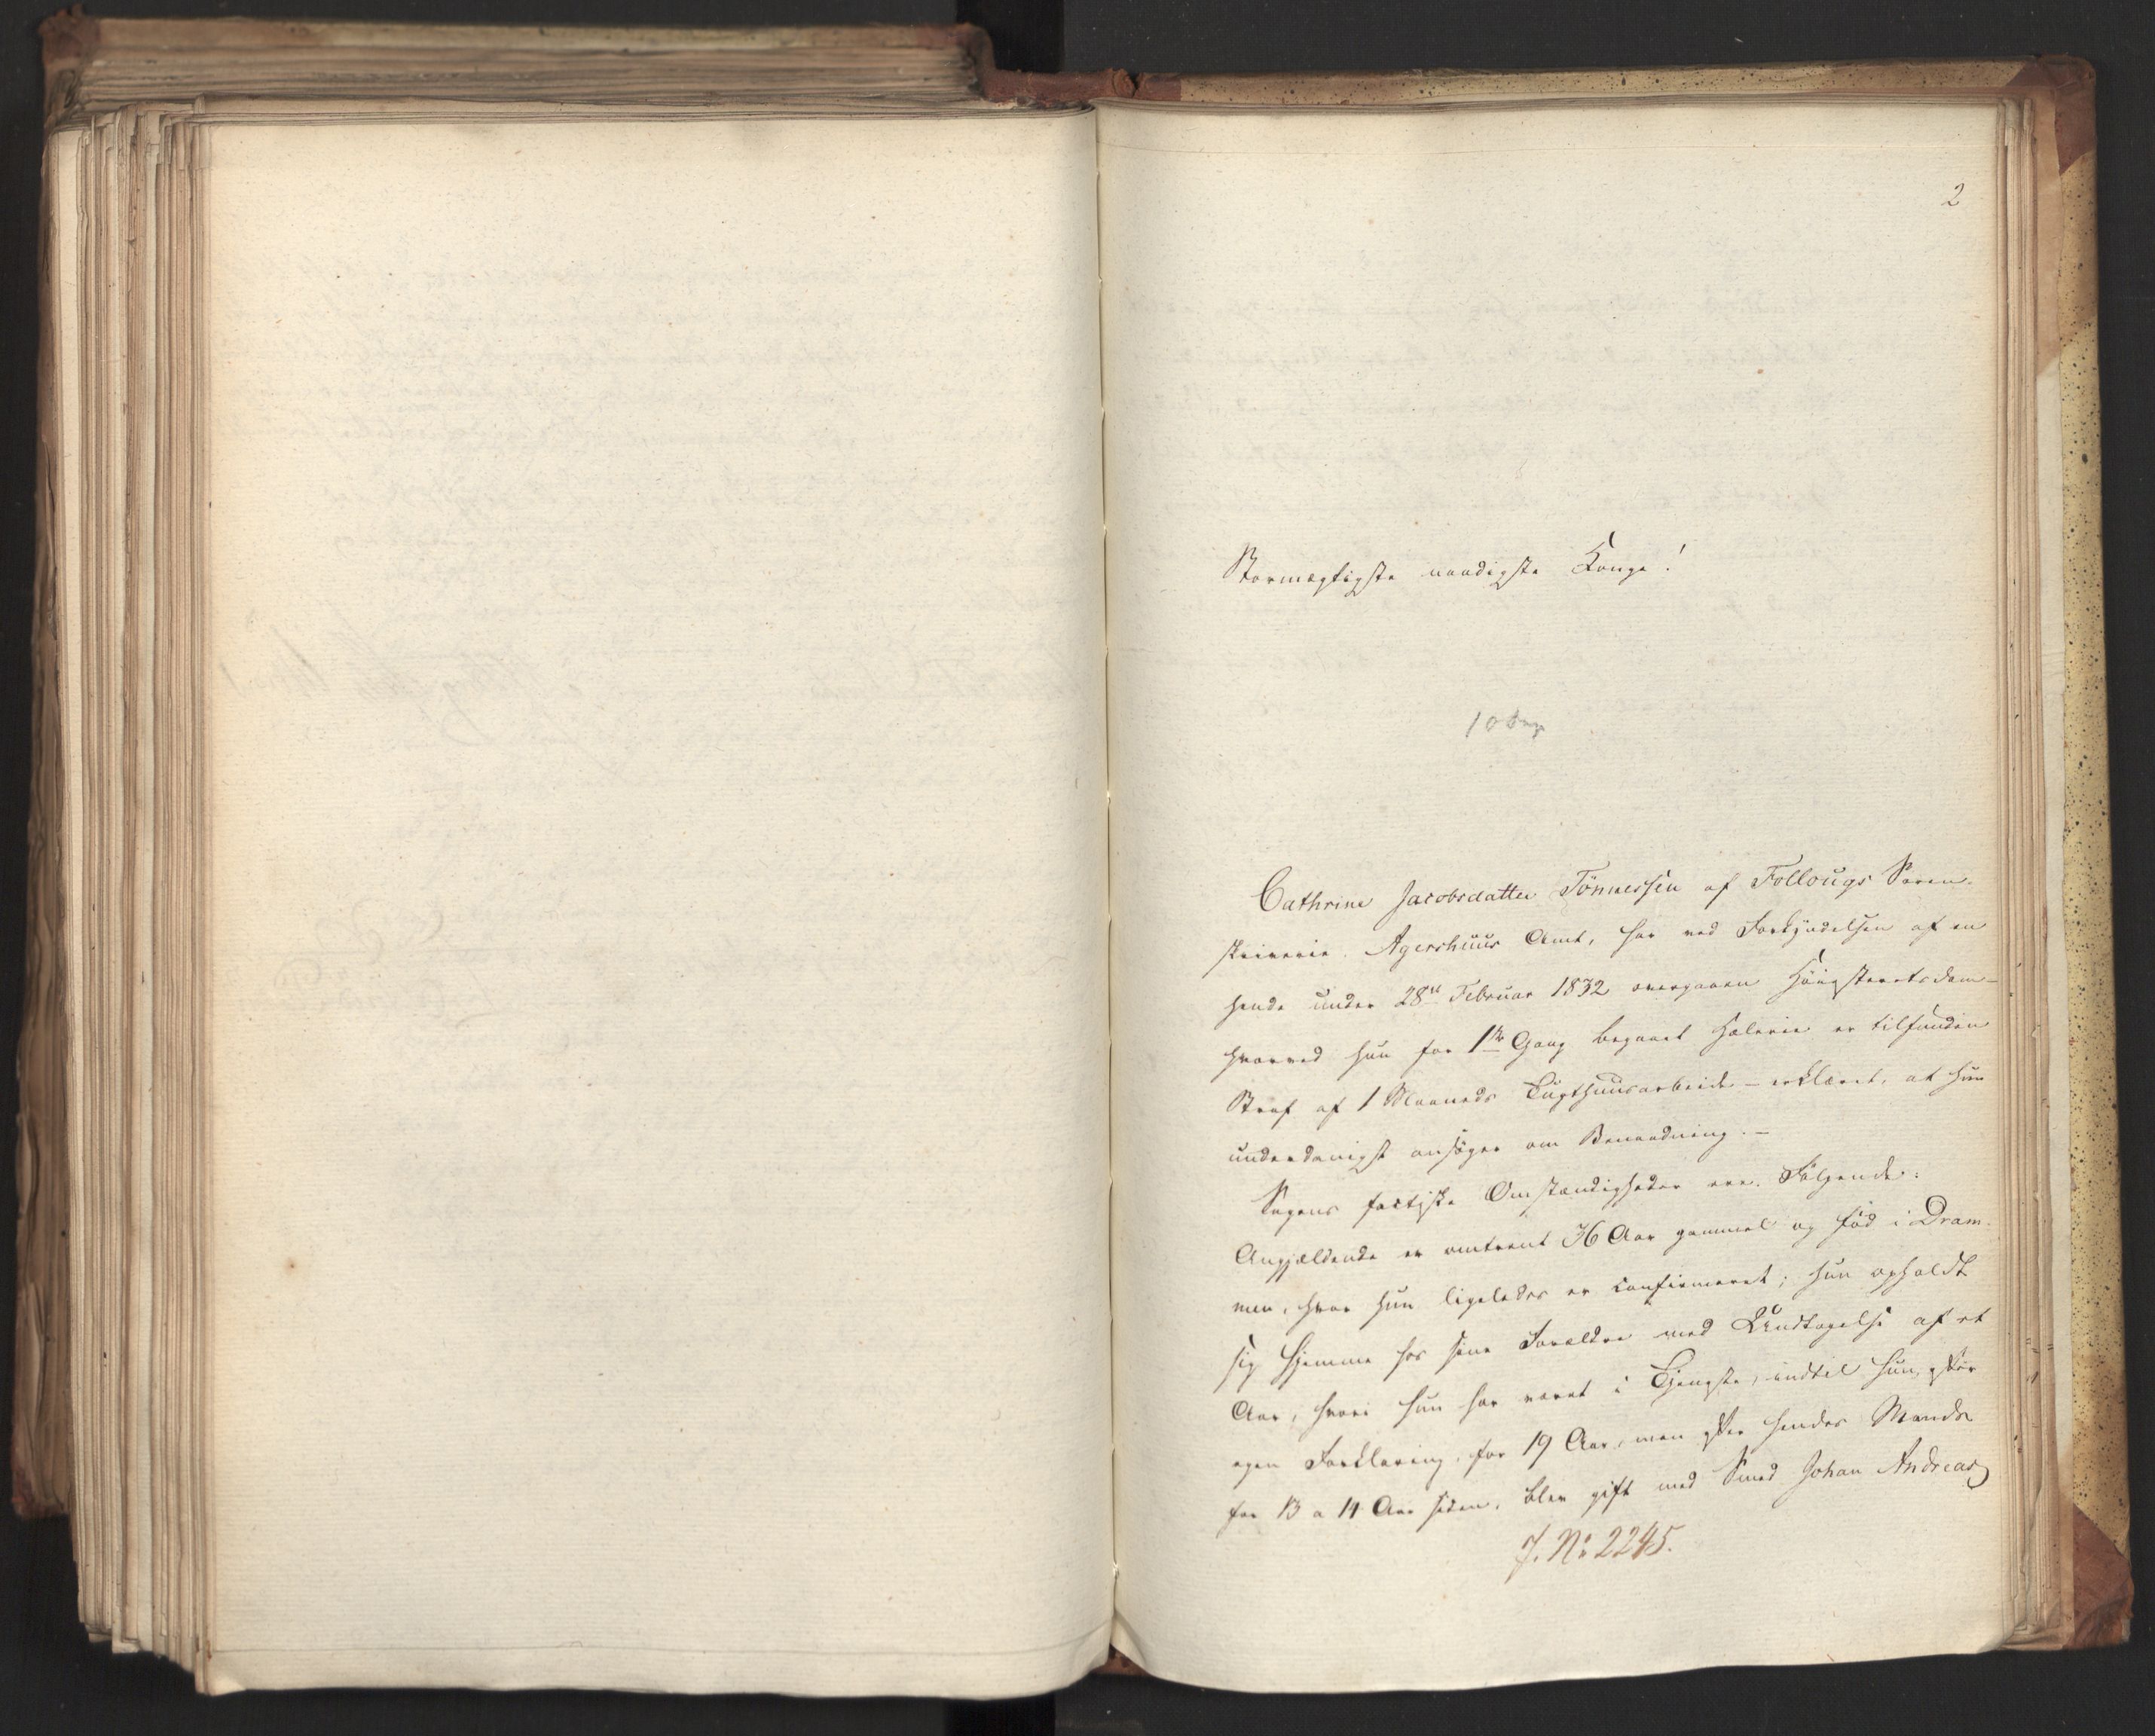 2
Stormægtigste naadigste Konge!
Cathrine Jacobsdatter Tönnessen af Follougs Soren-
skriverie, Agershuus Amt, har ved Forkyndelsen af en
hende under 28de Februar 1832 overgaaen Höiesteretsdom –
hvorved hun for 1ste Gang begaaet Hæleri er tilfunden
Straf af 1 Maaneds Tugthuusarbeide – erklæret, at hun
underdanigst ansøger om Benaadning. –
Sagens factiske Omstændigheder ere Følgende:
Angjældende er omtrent 36 Aar gammel og fød i Dram-
men, hvor hun ligeledes er confirmeret; hun opholdt
sig hjemme hos sine Forældre med Undtagelse af et
Aar, hvori hun har været i Tjeneste, indtil hun, efter
egen Forklaring, for 19 Aar, men efter hendes Mands
for 13 a 14 Aar siden, blev gift med Smed Johan Andreas
J. No 2245.